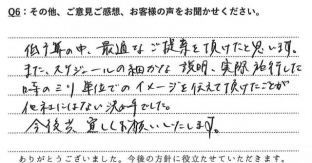 Q6：その他、ご意見ご感想、お客様の声をお聞かせください。
低予算の中、最適なご提案を頂けたと思います。
また、スケジュールの細かな説明、実際施行した
時のミリ単位でのイメージを伝えて頂けたことが
他社にはない決め手でした。
今後共、宜しくお願いいたします。
ありがとうございました。今後の方針に役立たせていただきます。